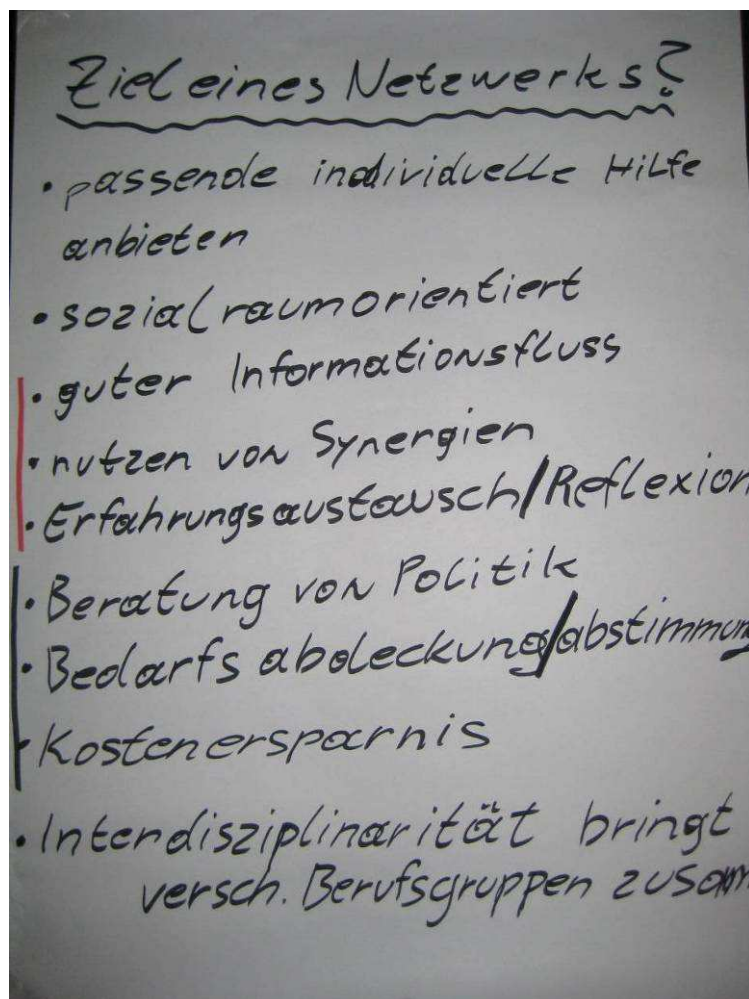 Ziel eines Netzwerks?
• passende individuelle Hilfe
anbieten
• sozialraumorientiert
• guter Informationsfluss
• nutzen von Synergien
• Erfahrungsaustausch/Reflexion
• Beratung von Politik
• Bedarfsabdeckung/abstimmung
• Kostenersparnis
• Interdisziplinarität bringt
versch. Berufsgruppen zusam